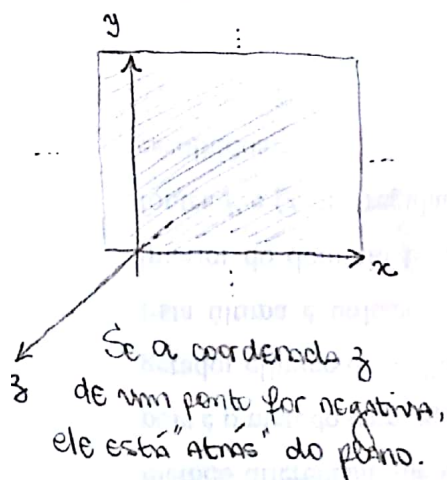 y
x
z
Se a coordenada z
de um ponto for negativa,
ele está "atrás" do plano.